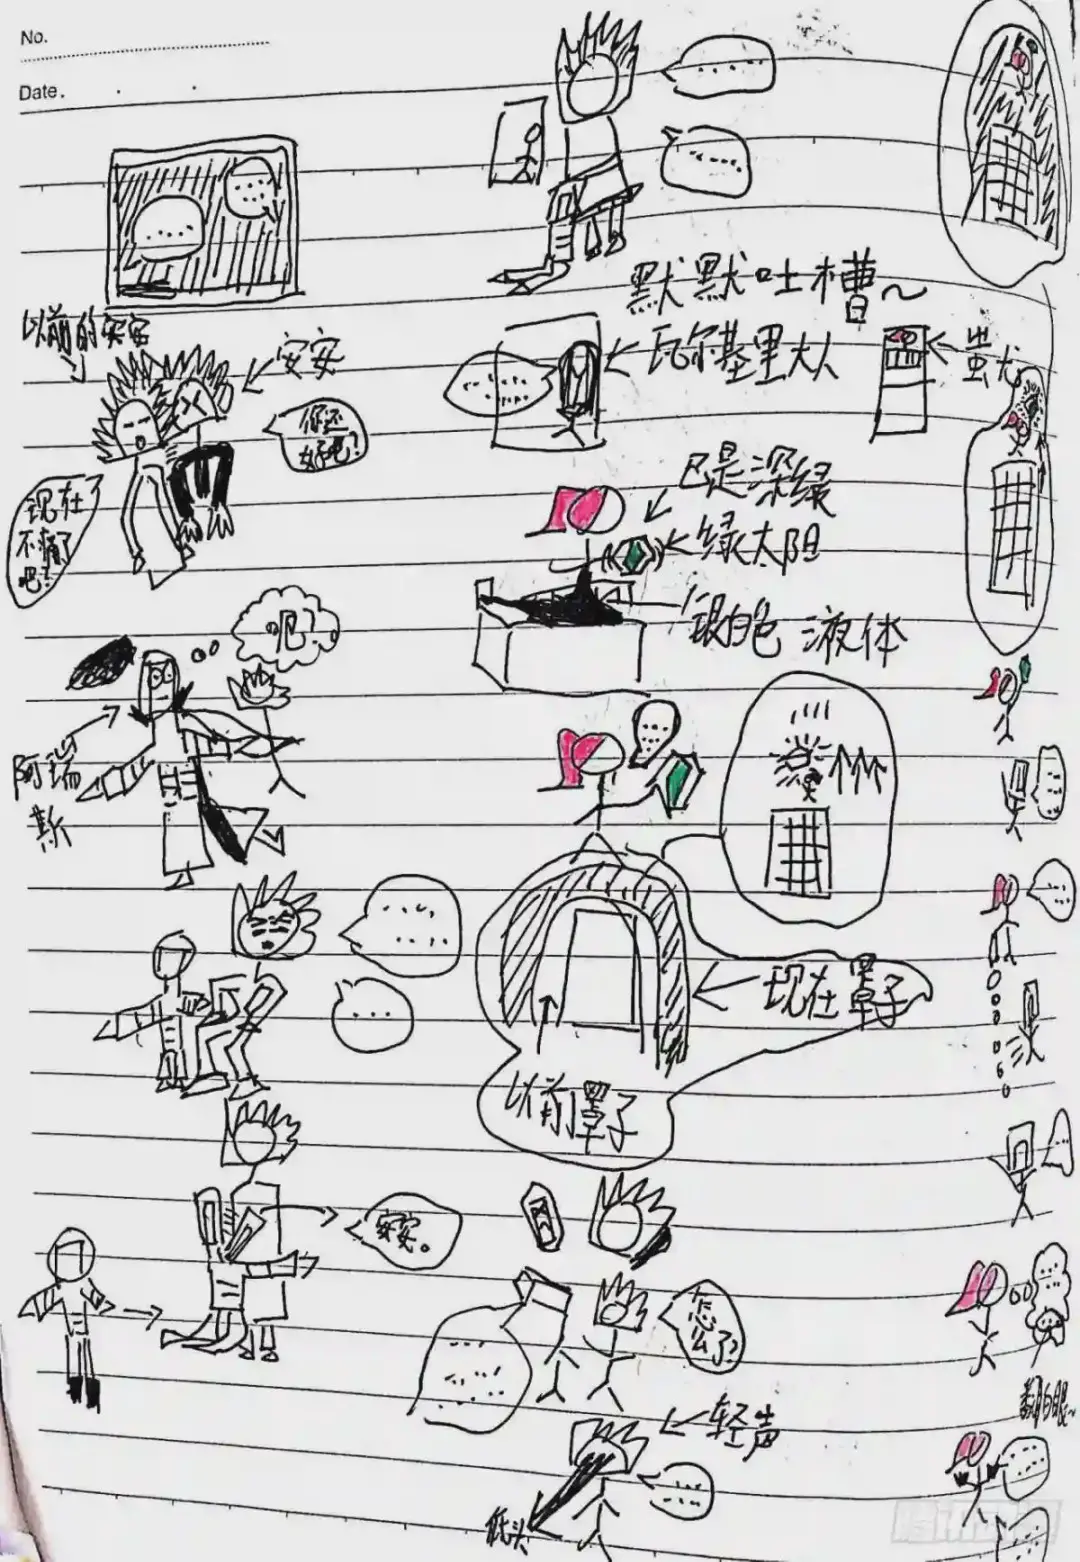 No.
Date.
默默吐槽~
以前的安安
安安
瓦尔基里大人
蚩尤
你还
好吧?
现在
不痛了
吧!
E是深绿
绿太阳
银白色 液体
吧?
阿瑞
斯
现在罩子
以前罩子
安安。
怎
么了?
翻白眼~
轻声
低头